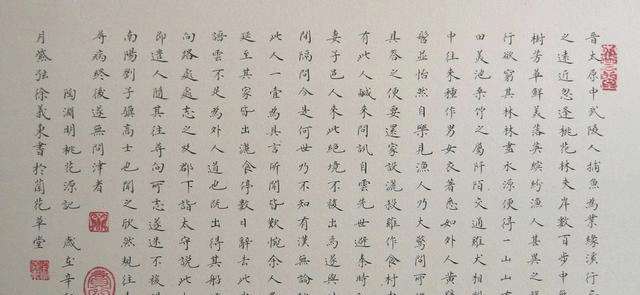 晉太原中武陵人捕魚為業緣溪行
之遠近忽逢桃花林夾岸數百步中
樹芳華鮮美落英繽紛漁人甚異之
行欲窮其林林盡水源便得一山山
田美池桑竹之屬阡陌交通雞犬相
中往來種作男女衣著悉如外人黃
髫並怡然自樂見漁人乃大驚問所
具答之便要還家設酒殺雞作食村
有此人鹹來問訊自雲先世避秦時
妻子邑人來此絕境不復出焉遂與
間隔問今是何世乃不知有漢無論
此人一一為具言所聞皆歎惋余人
延至其家皆出酒食停數日辭去此
語雲不足為外人道也既出得其船
向路處處志之及郡下詣太守說此
即遣人隨其往尋向所志遂迷不復
南陽劉子驥高士也聞之欣然規往
尋病終後遂無問津者
陶淵明桃花源記 歲在辛
徐義東書於蘭花草堂